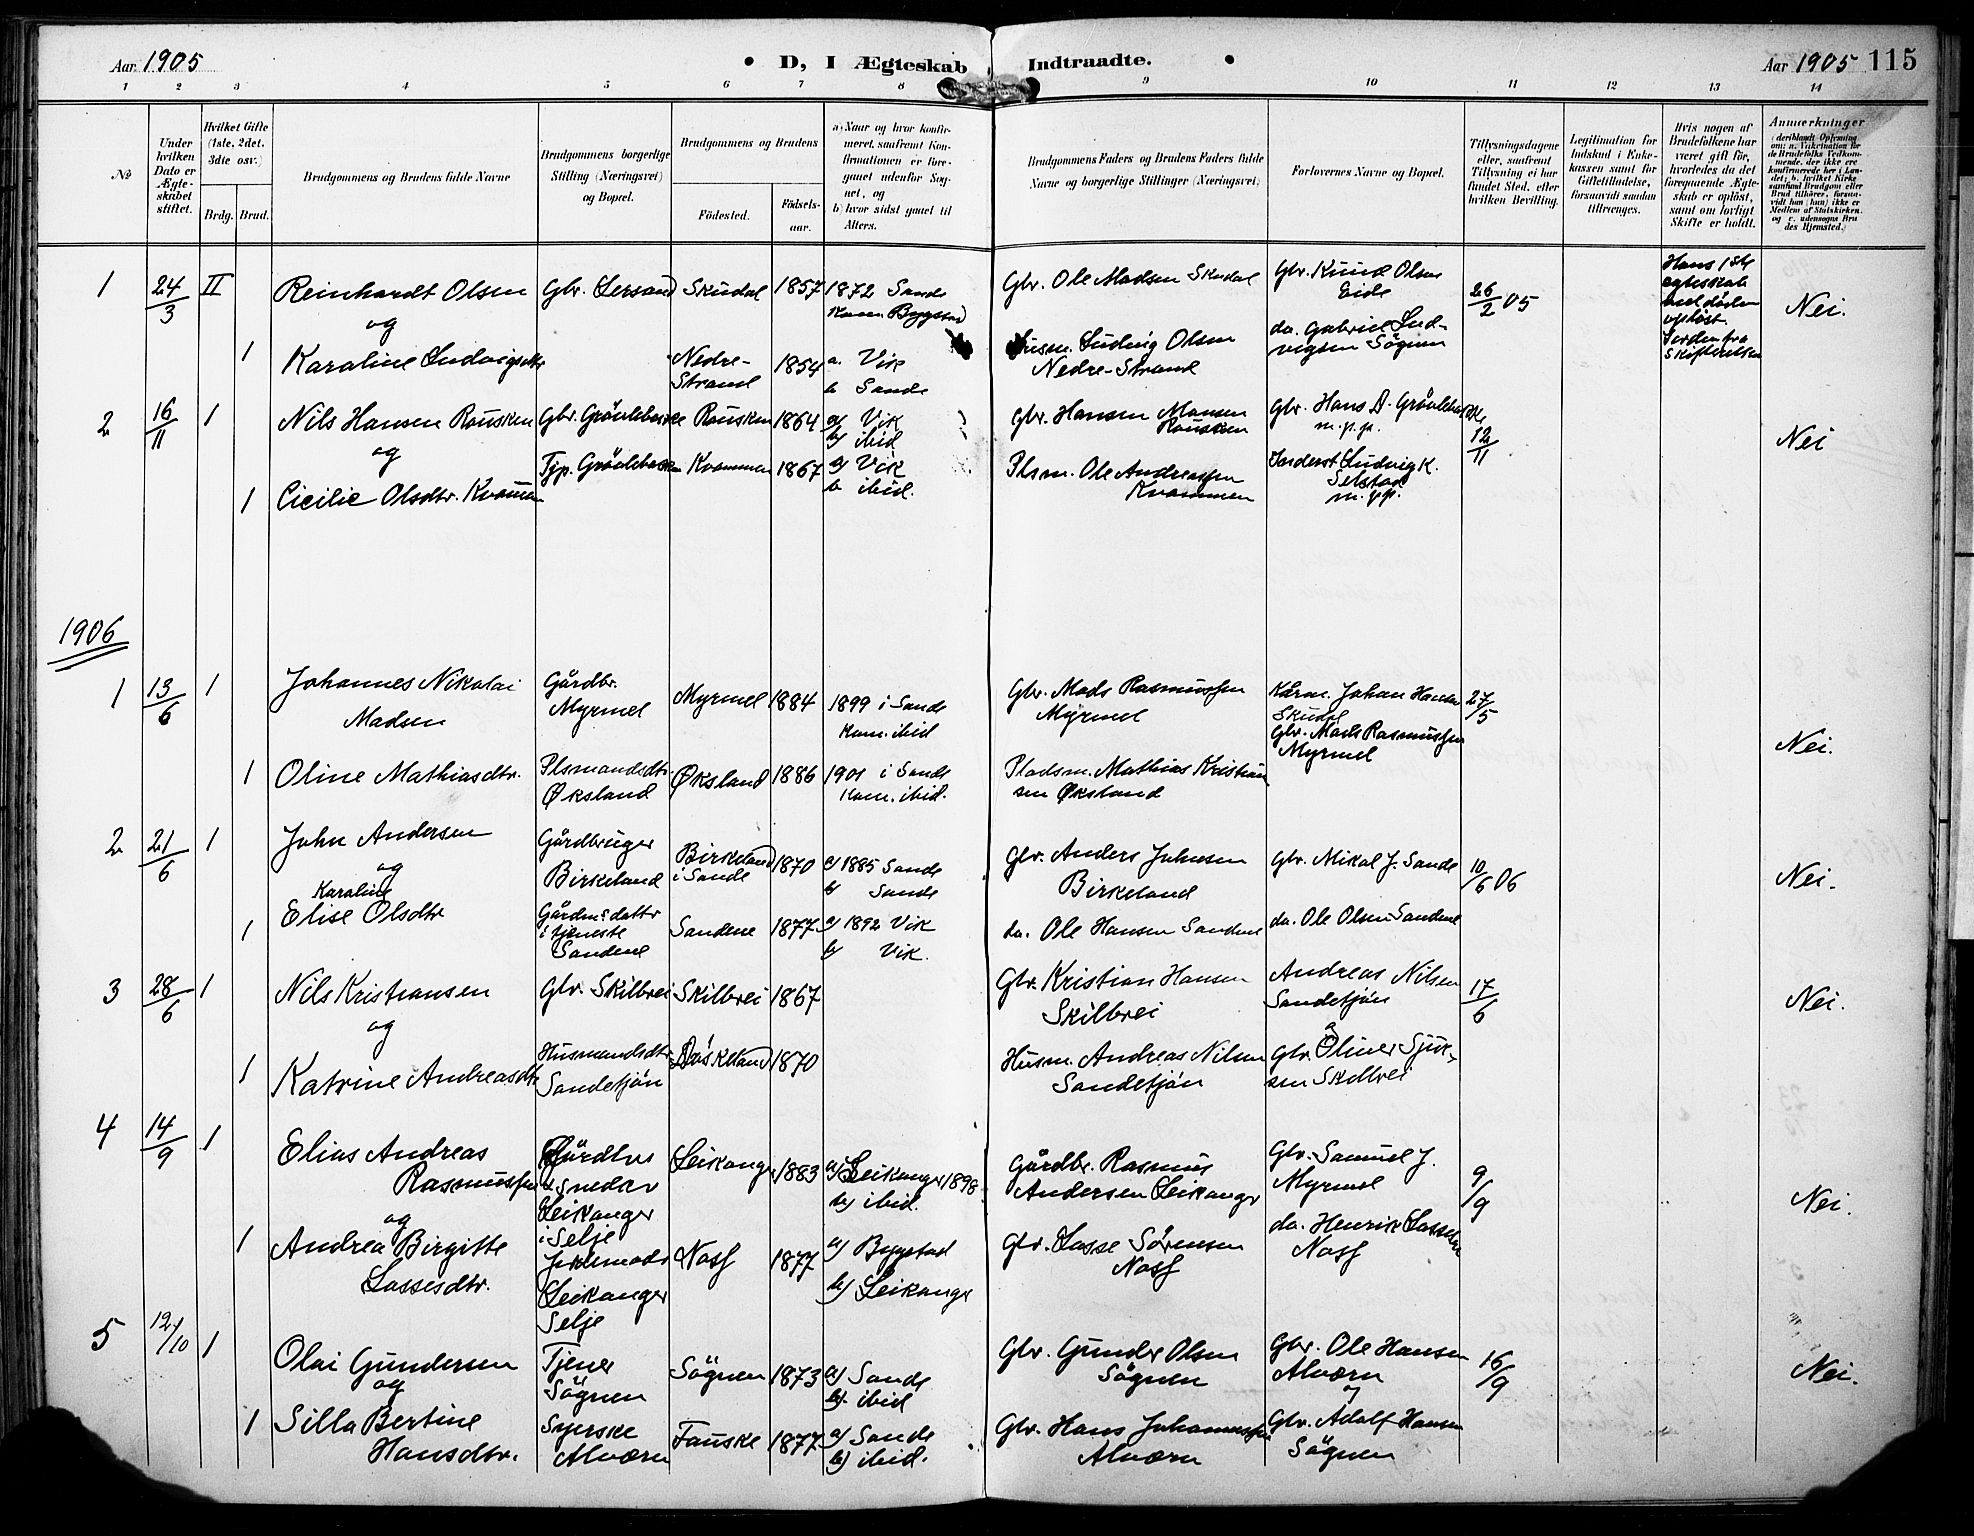 Aar 1905
D, I Ægteskab Indtraadte.
Aar 1905 115
1 2 3 4 5 6 7 8 9 10 11 12 13 14
No
Under hvilken Dato er Ægteskabet stiftet.
Hvilket Gifte (1ste, 2det, 3die osv.)
Brdg. Brud.
Brudgommens og Brudens fulde Navne
Brudgommens borgerlige Stilling (Næringsvei) og Bopæl.
Brudgommens og Brudens
Fødested.
Fødselsaar.
a) Naar og hvor konfirmeret, saafremt Konfirmationen er foregaaet udenfor Sognet, og
b) hvor sidst gaaet til Alters.
Brudgommens Faders og Brudens Faders fulde Navne og borgerlige Stillinger (Næringsvei)
Forlovernes Navne og Bopæl.
Tillysningsdagene eller, saafremt Tillysning ei har fundet Sted, efter hvilken Bevilling.
Legitimation for Indskud i Enkekassen samt for Giftetilladelse, forsaavidt saadan tiltrænges.
Hvis nogen af Brudefolkene har været gift før, hvorledes da det foregaaende Ægteskab er opløst, samt om lovligt Skifte er holdt.
Anmerkninger
(deriblandt Oplysning om: a. Vakcination for de Brudefolks Vedkommende, der ikke ere konfirmerede her i Landet; b. hvilket Kirkesamfund Brudgom eller Brud tilhører, forsaavidt han (hun) ikke er Medlem af Statskirken, og c. udensogns Brudes Hjemsted.)
1 24/3 II Reinhardt Olsen Gbr. Lersand Skudal 1857 1872 Sande Gbr. Ole Madsen Skudal Gbr. Knud Olsen Eide 26/2 05 Nei.
og Kom. Bygstad
Hans 1ste
egteskab
ved døden
opløst.
Skifteretten
1 Karoline Ludvigsdtr Nedre-Strand 1854 a. Vik b Sande Husm. Ludvig Olsen Nedre-Strand do. Gabriel Ludvigsen Sögnen
2 16/11 1 Nils Hansen Rousken Gbr. Grövlebakke Rousken 1864 a) Vik b) ibid Gbr. Hansen Rousken Gbr. Hans D. Grövlebakke m.p.p. 12/11 Nei
og
1 Cicilie Olsdtr. Kvammen Tjp. Grövlebakken Kvammen 1867 a) Vik b ibid. Plsm. Ole Andreassen Kvammen Inderst Ludvig K. Selstad m.p.p.
1906
1 13/6 1 Johannes Nikolai Madsen Gårdbr. Myrmel Myrmel 1884 1899 i Sande Kom. ibid Gbr. Mads Rasmussen Myrmel Kårm. Johan Hansen Skudal 27/5
Gbr. Mads Rasmussen Myrmel Nei.
1 Oline Mathiasdtr. Plsmandsdtr. Øksland Øksland 1886 1901 i Sande Kom. ibid. Pladsm. Mathias Kristiansen Øksland
2 21/6 1 John Andersen Gårdbruger Birkeland Birkeland i Sande 1870 a) 1885 Sande b) Sande Gbr. Anders Johnsen Birkeland Gbr. Mikal J. Sande 10/6 06 Nei.
og
Karoline
1 Elise Olsdtr Gårdm.s datter i tjeneste Sandene Sandene 1877 a) 1892 Vik b) Vik. do. Ole Hansen Sandene do. Ole Olsen Sandene
3 28/6 1 Nils Kristiansen Gbr. Skilbrei Skilbrei 1867 Gbr. Kristian Hansen Skilbrei Andreas Nilsen Sandetjön 17/6 Nei.
og
1 Katrine Andreasdtr Husmandsdtr. Sandetjön Döskeland 1870 Husm. Andreas Nilsen Sandetjön Gbr. Oliner Sjursen Skilbrei
4 14/9 1 Elias Andreas Rasmussen Gårdbr & snedker Leikanger i Selje Leikanger 1883 a) Leikanger 1898 b) ibid. Gårdbr. Rasmus Andersen Leikanger Gbr. Samuel J. Myrmel 9/9 Nei.
og
1 Andrea Birgitte Lassesdtr. Jordemoder Leikanger Selje Nass 1877 a) Bygstad b) Leikanger Gbr. Lasse Sørensen Nass do. Henrik Lassesen Nass
5 12/10 1 Olai Gundersen Tjener Sögnen Sögnen 1873 a) Sande b). ibid Gbr. Gunder Olsen Sögnen Gbr. Ole Hansen Alværn 16/9 Nei.
og og
1 Silla Bertine Hansdtr. Syerske Alværn Fauske 1877 a) Sande b) ibid. Gbr. Hans Johannessen Alværn Gbr. Adolf Hansen Sögnen